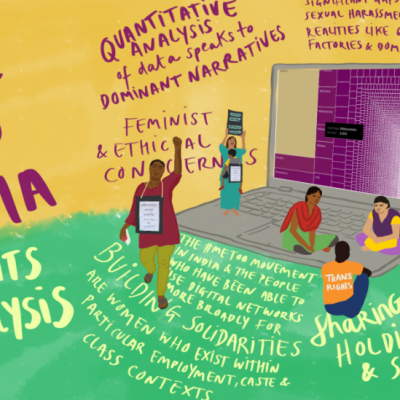 QUANTITATIVE
ANALYSIS
of data speaks to
DOMINANT NARRATIVES
SEXUAL HARASSME
REALITIES LIKE
FACTORIES & DOM
FEMINIST
& ETHICAL
CONCERNS
IA
TS
YSIS
THE #METOO MOVEMENT
IN INDIA & THE PEOPLE
WHO HAVE BEEN ABLE TO
USE DIGITAL NETWORKS
MORE BROADLY FOR
BUILDING SOLIDARITIES
ARE WOMEN WHO EXIST WITHIN
PARTICULAR EMPLOYMENT, CASTE &
CLASS CONTEXTS
TRANS
RIGHTS
Sharing
HOLDI
& S